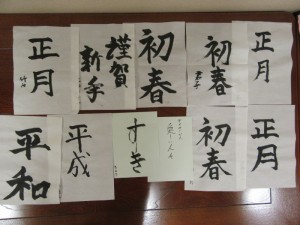 正月
謹賀
新年
初春
初春
正月
平和
平成
すき
初春
正月